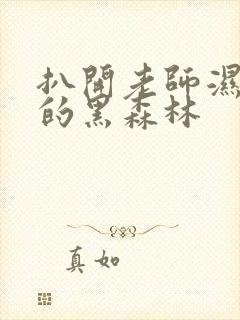 扒開老師濕
的黑森林
真如